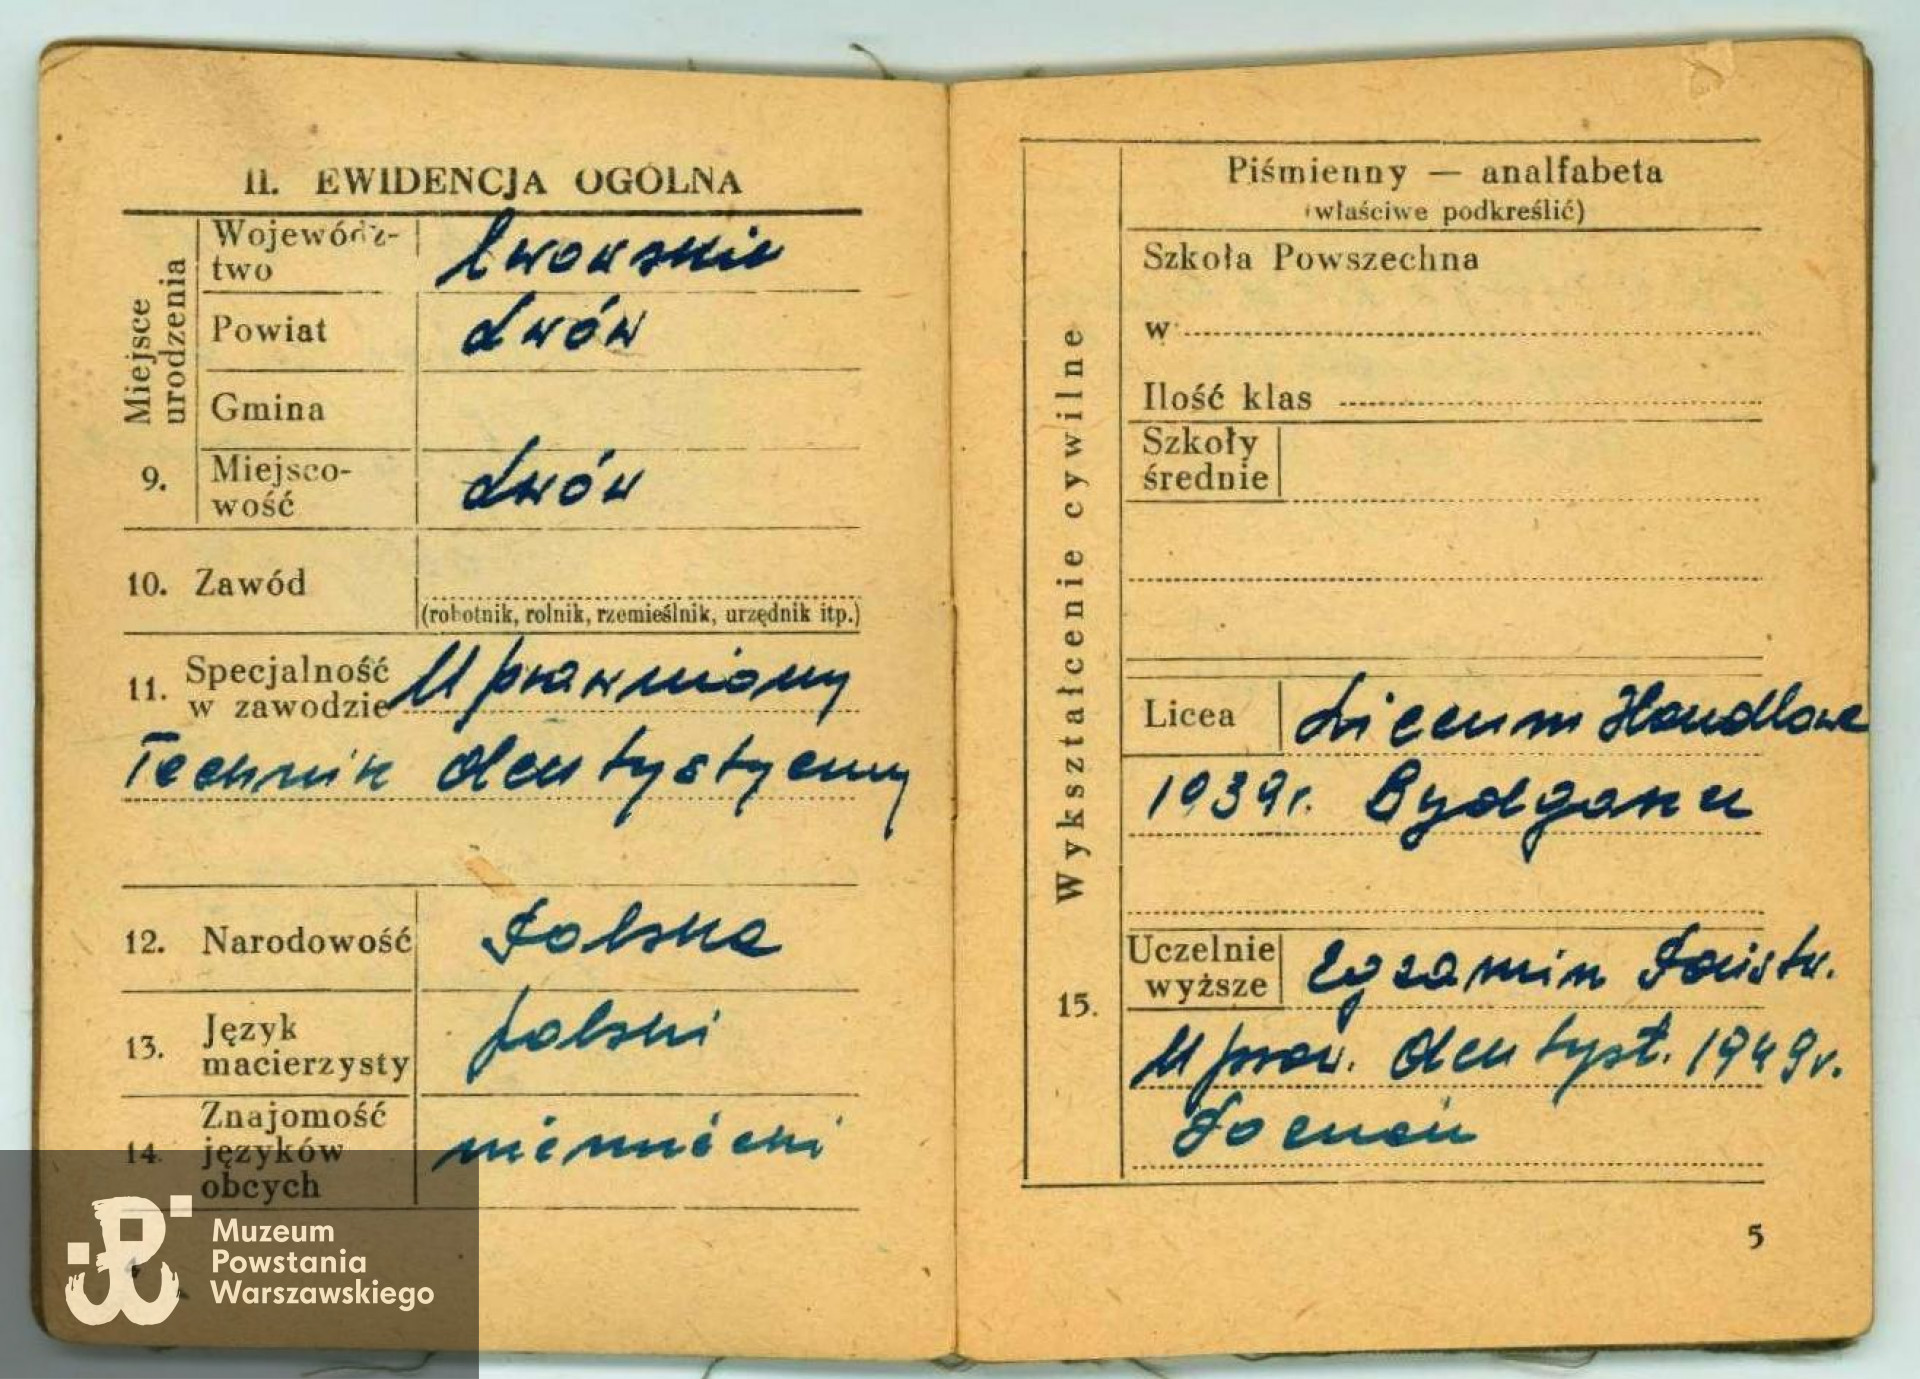 II. EWIDENCJA OGÓLNA
Miejsce
urodzenia
9.
Wojewódz-
two
Lwowskie
Powiat
Lwów
Gmina
Miejsco-
wość
Lwów
10. Zawód
(robotnik, rolnik, rzemieślnik, urzędnik itp.)
11. Specjalność
w zawodzie
Uprawniony
Technik dentystyczny
12. Narodowość
Polska
13. Język
macierzysty
polski
14. Znajomość
języków
obcych
niemiecki
Muzeum
Powstania
Warszawskiego
Wykształcenie cywilne
15.
Piśmienny — analfabeta
(właściwe podkreślić)
Szkoła Powszechna
w
Ilość klas
Szkoły
średnie
Licea
Liceum Handlowe
1939r.
Uczelnie
wyższe
Egzamin Państw.
Upraw. dentyst. 1949r.
Poznań
5